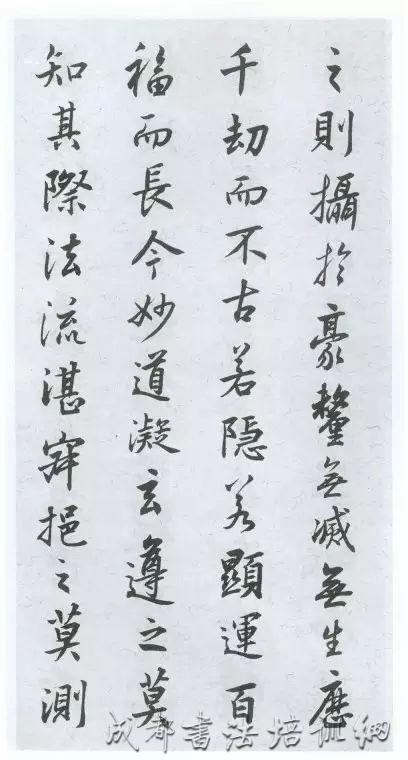 之則攝於豪釐無滅無生歷
千劫而不古若隱若顯運百
福而長今妙道凝玄遵之莫
知其際法流湛寂挹之莫測
成都書法培训網